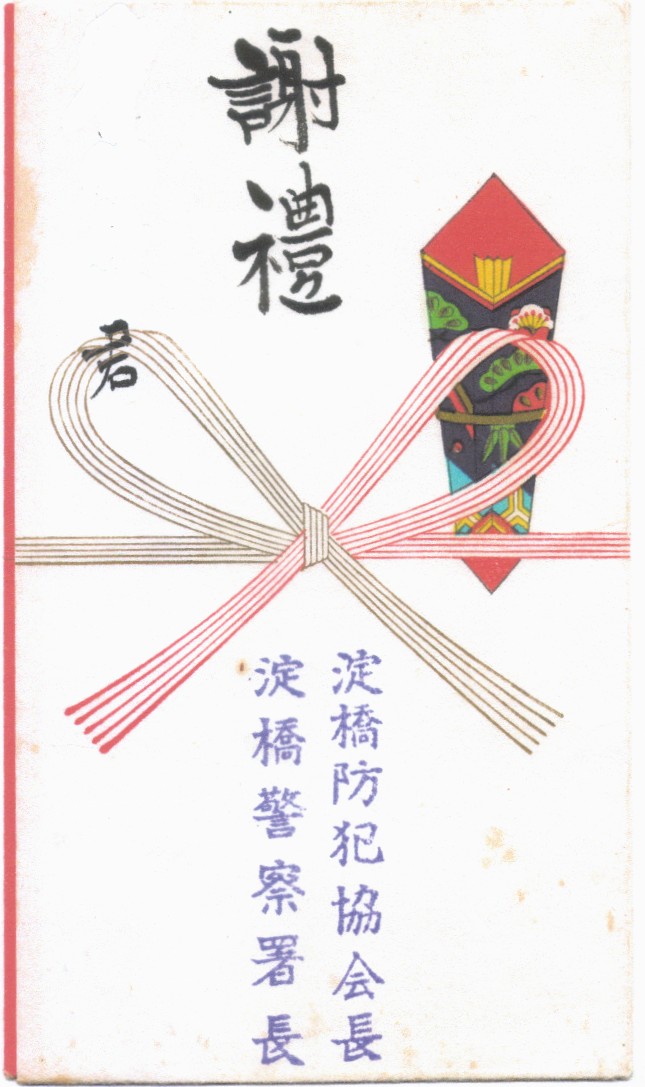 謝禮
君
淀橋防犯協会長
淀橋警察署長